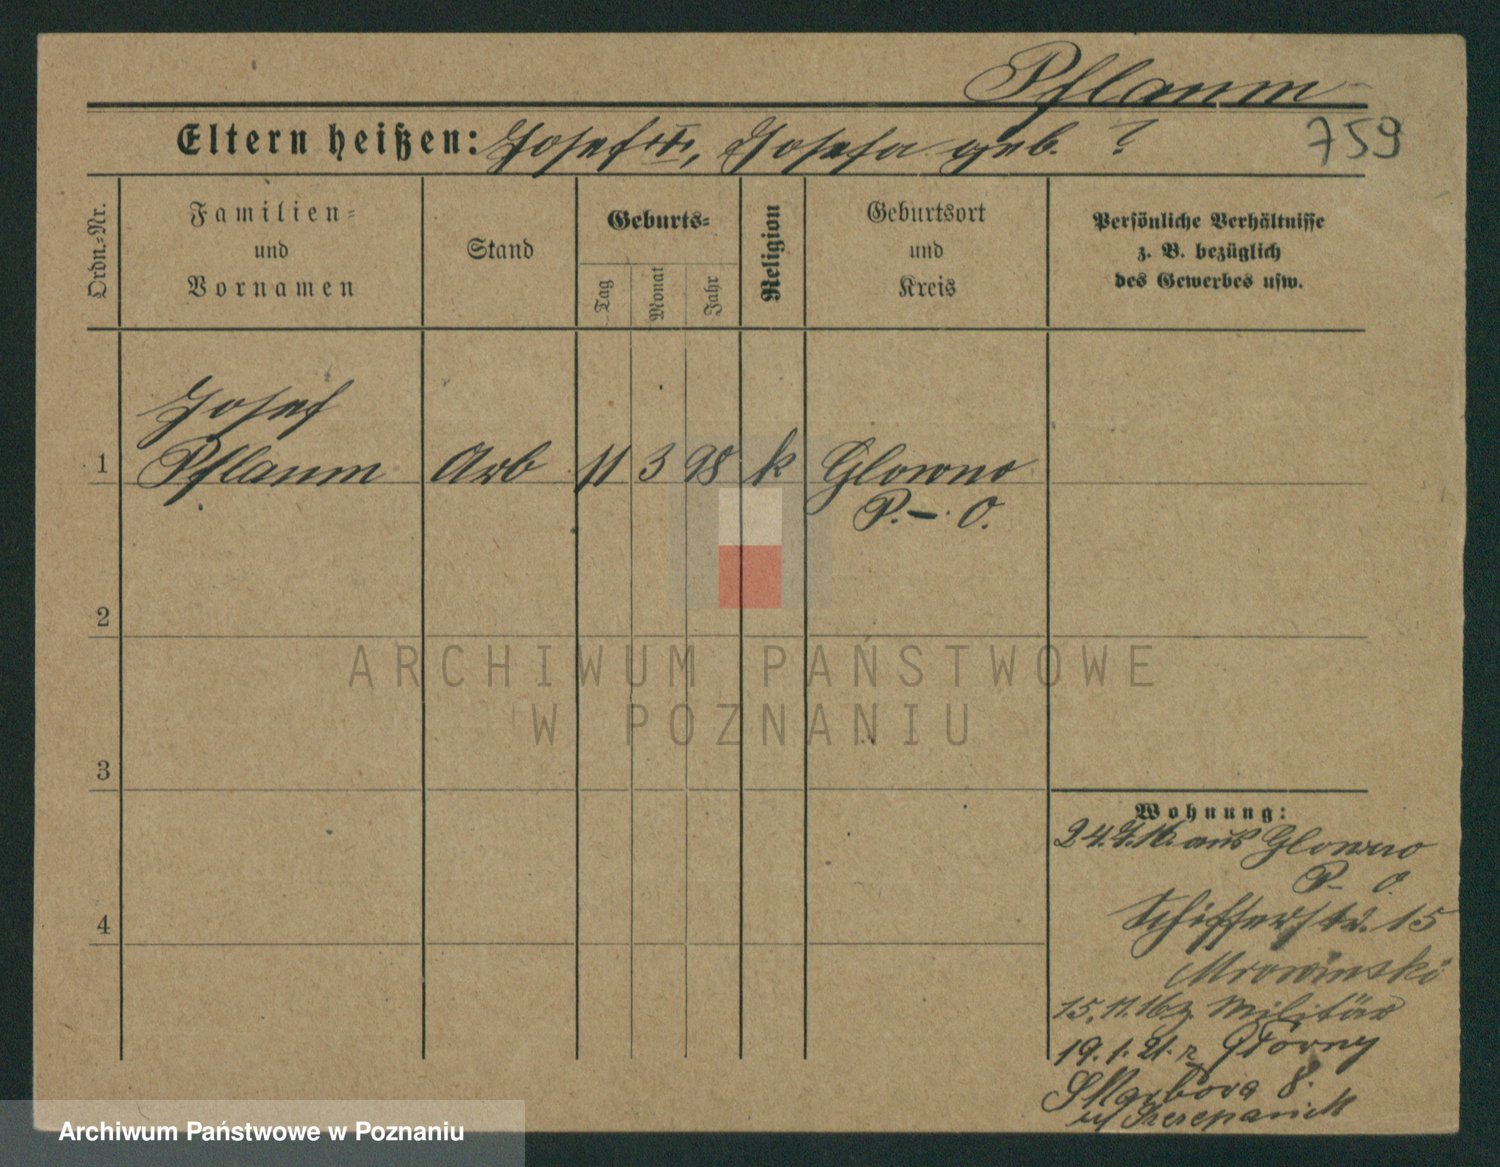 Pflaum
Eltern heißen: Josef, Josefa geb. ?
759
Ordn.=Nr.
Familien=
und
Vornamen
Stand
Geburts=
Tag
Monat
Jahr
Religion
Geburtsort
und
Kreis
Persönliche Verhältnisse
z. B. bezüglich
des Gewerbes usw.
Josef
1 Pflaum Arb 11 3 98 k Glowno
P. – O.
2
ARCHIWUM PAŃSTWOWE
W POZNANIU
3
Wohnung:
24.7.16. aus Glowno
P– O.
4
Schifferstr. 15
Mrowinski
15.11.16 z. Militär
19.1.21. z Główny
Skarbowa 8.
Szczepaniak
Archiwum Państwowe w Poznaniu